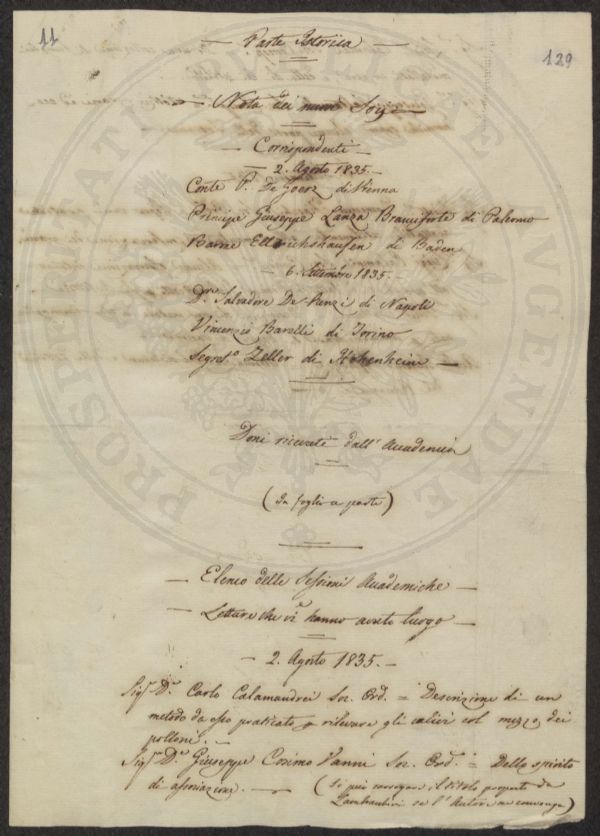 11
129
— Parte Istorica —
— Nota dei nuovi Socj —
— Corrispondenti —
— 2. Agosto 1835. —
Conte P. De Goerz di Vienna
Principe Giuseppe Lanza Branciforte di Palermo
Barne Ellrichshausen di Baden
— 6. Settembre 1835. —
Dre. Salvadore De-Renzi di Napoli
Vincenzio Barelli di Torino
Segret.o Zeller di Hohenheim —
Doni ricevuti dall' Accademia
(In foglio a parte)
— Elenco delle Sessioni Accademiche —
— Letture che vi hanno avuto luogo —
— 2. Agosto 1835. —
Sigr. Dr. Carlo Calamandrei Soc. Ord. = Descrizione di un
metodo da esso praticato rilevare gli ulivi col mezzo dei
polloni. —
Sigr. Dr. Giuseppe Cosimo Vanni Soc. Ord. = Dello spirito
di associazione. — (Si può correggere il titolo proposto da
Lambruschini se l'Autore ne conviene)
PROSPERITATI PUBLICAE AUGENDAE